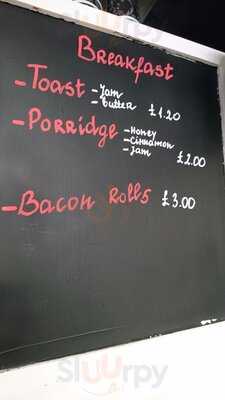 Breakfast
-Toast -Jam
-Butter £1.20
-Porridge -Honey
-Cinnamon
-Jam £2.00
-Bacon Rolls £3.00
Sluurpy